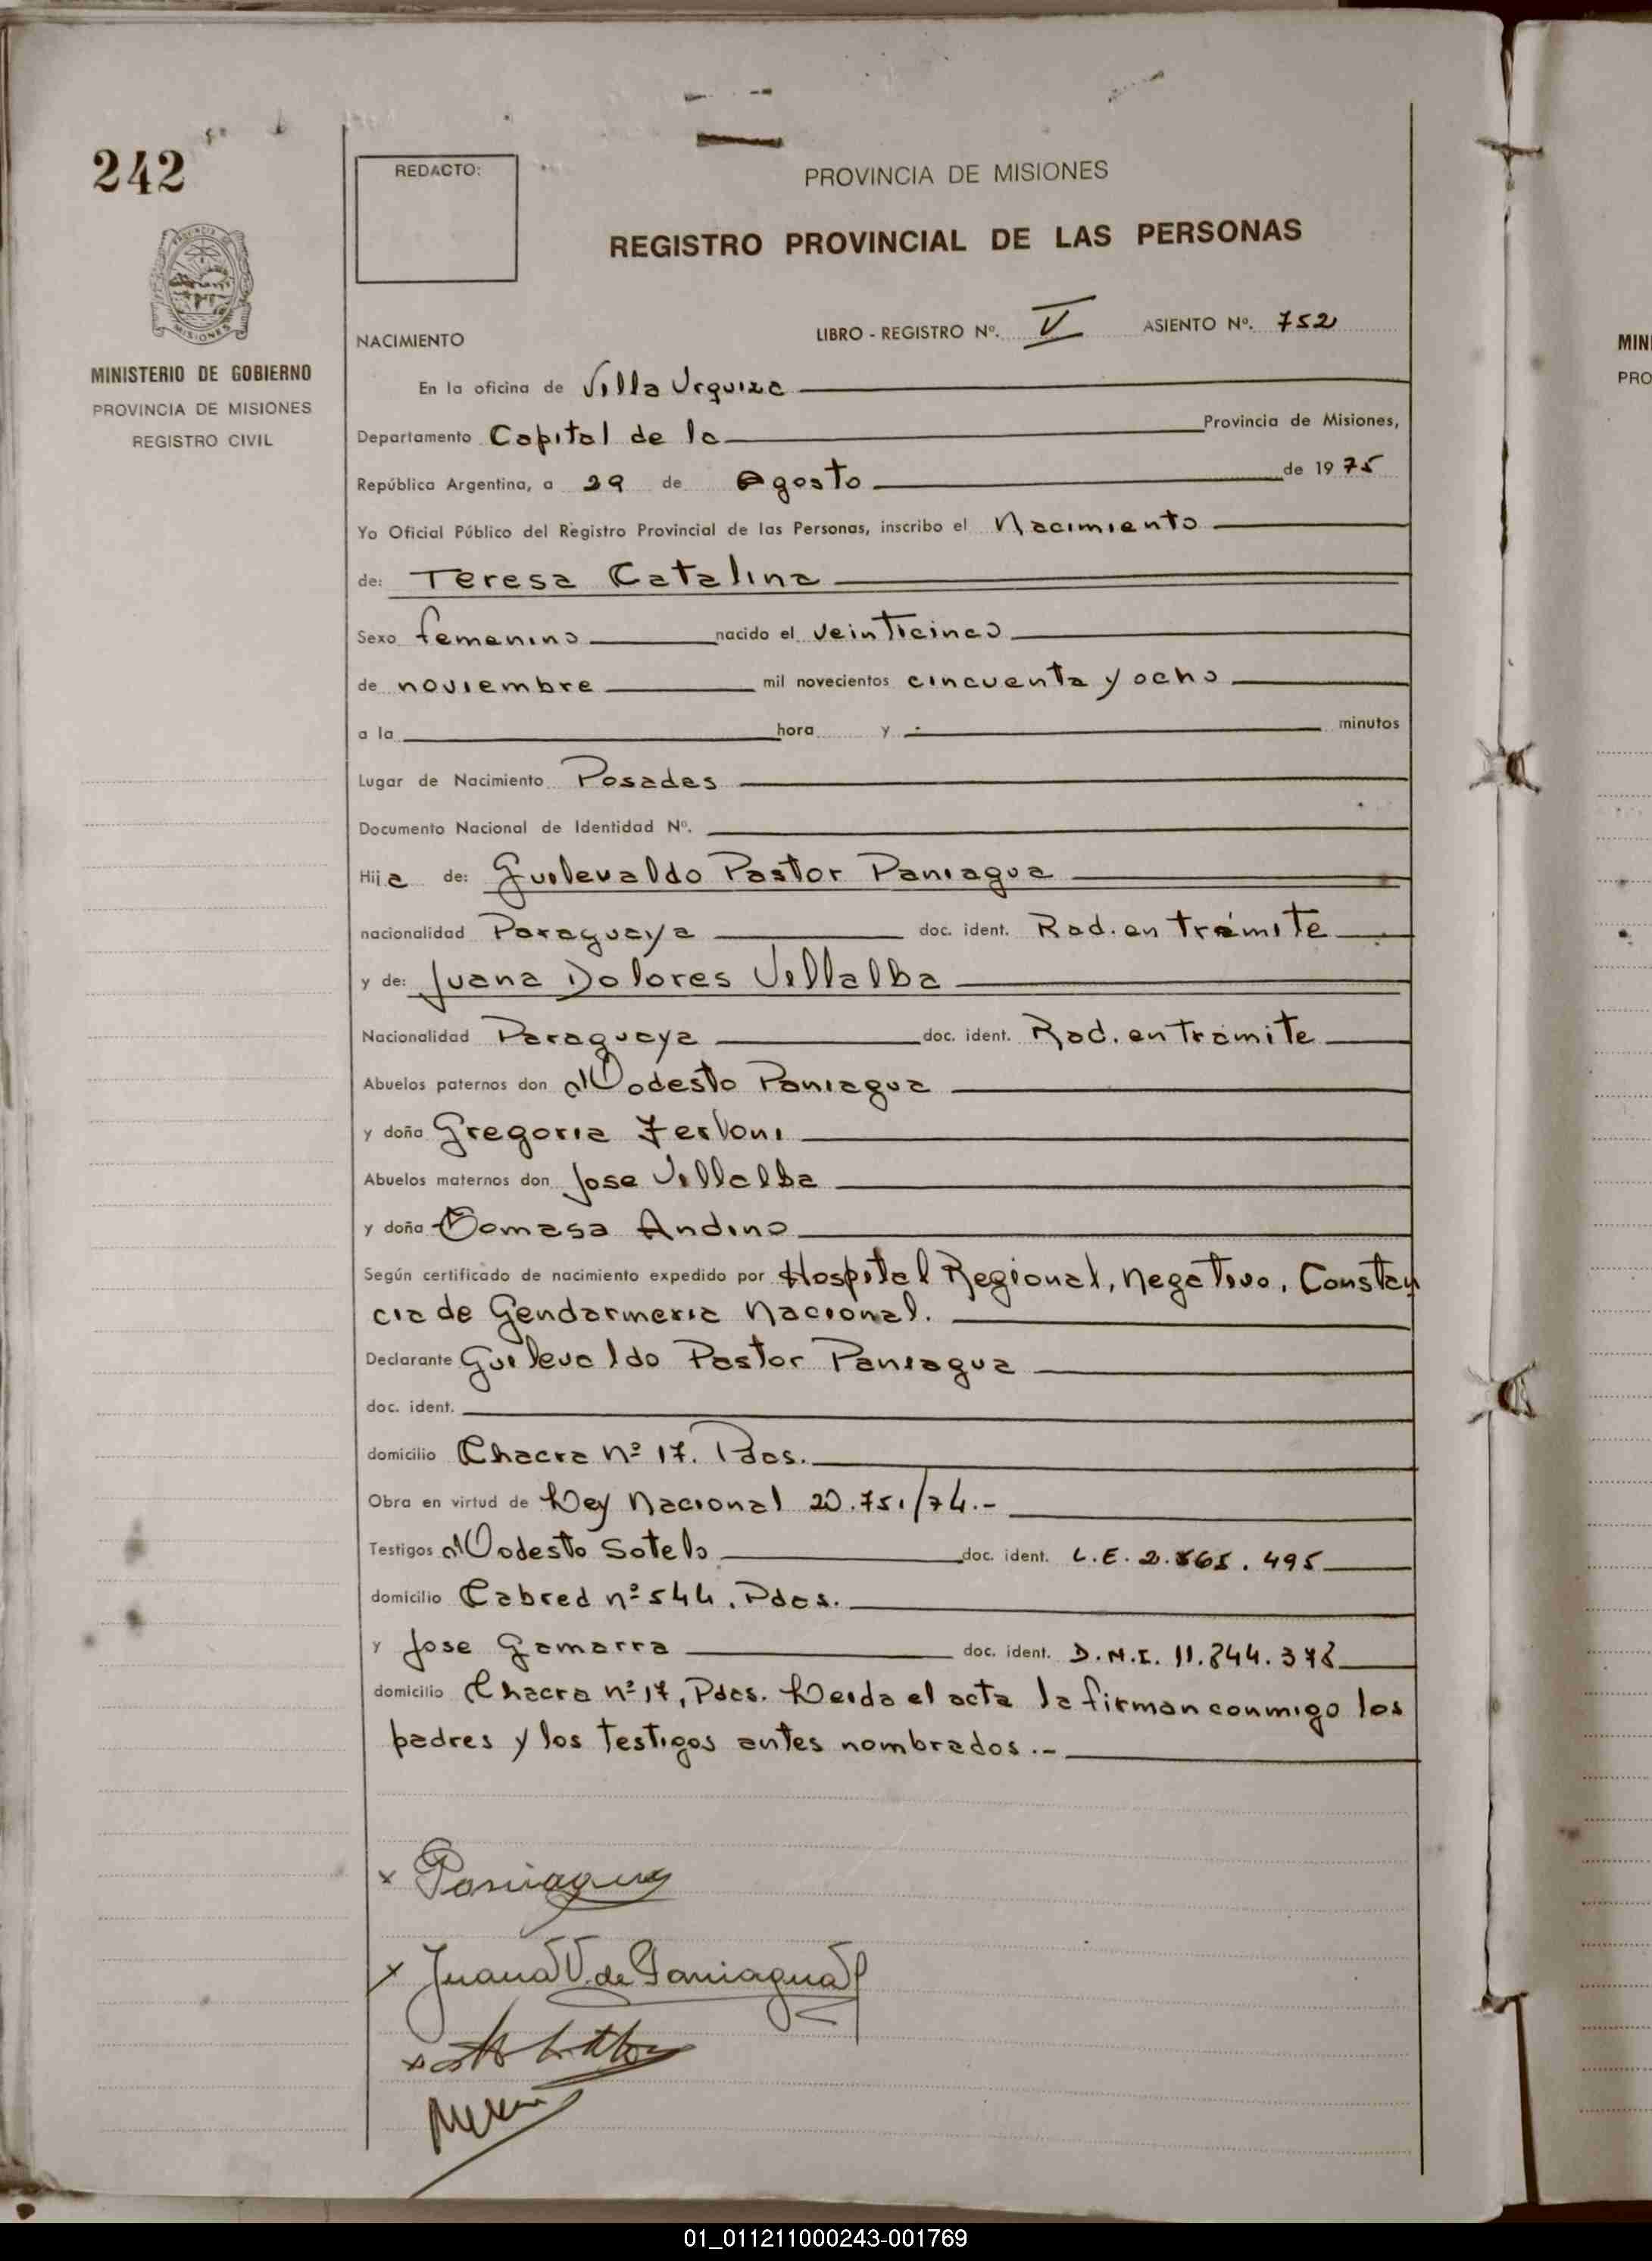 242
REDACTO:
PROVINCIA DE MISIONES
REGISTRO PROVINCIAL DE LAS PERSONAS
PROVINCIA DE
MISIONES
MINISTERIO DE GOBIERNO
PROVINCIA DE MISIONES
REGISTRO CIVIL
NACIMIENTO LIBRO - REGISTRO Nº. V ASIENTO Nº. 752
En la oficina de Villa Urquiza
Departamento Capital de la Provincia de Misiones,
República Argentina, a 29 de Agosto de 1975
Yo Oficial Público del Registro Provincial de las Personas, inscribo el Nacimiento
de: Teresa Catalina
Sexo femenino nacido el veinticinco
de noviembre mil novecientos cincuenta y ocho
a la hora y minutos
Lugar de Nacimiento Posadas
Documento Nacional de Identidad Nº.
Hija de: Pastor Paniagua
nacionalidad Paraguaya doc. ident. Rad. en trámite
y de: Juana Dolores Villalba
Nacionalidad Paraguaya doc. ident. Rad. en tramite
Abuelos paternos don Modesto Paniagua
y doña Gregoria
Abuelos maternos don Jose Villalba
y doña Tomasa Andino
Según certificado de nacimiento expedido por Hospital Regional, negativo, Constan
cia de Gendarmeria Nacional.
Declarante Pastor Paniagua
doc. ident.
domicilio Chacra nº 17. Pdas.
Obra en virtud de Ley Nacional 20.751/74.-
Testigos Modesto Sotelo doc. ident. L.E.
domicilio Cabred nº 544. Pdas.
y Jose Gamarra doc. ident. D.N.I.
domicilio Chacra nº 17, Pdas. Leida el acta la firman conmigo los
padres y los testigos antes nombrados.-
x Paniagua
x Juana V. de Paniagua
x
MIN
PRO
01_011211000243-001769